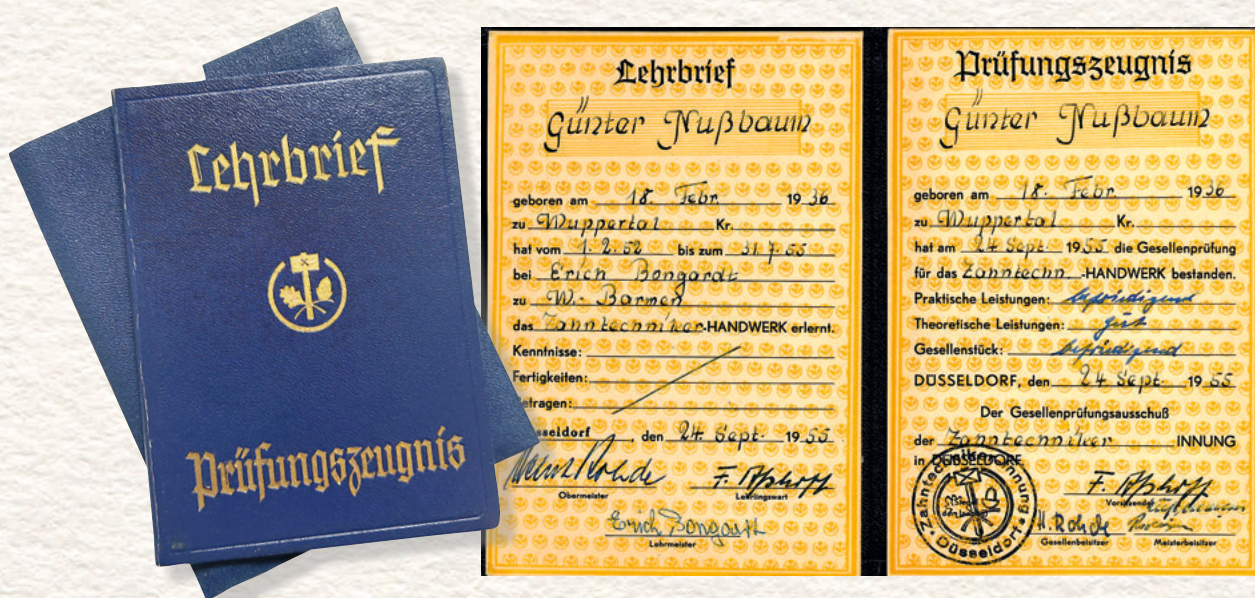 Lehrbrief
Prüfungszeugnis
Lehrbrief
Günter Nußbaum
geboren am 18. Febr. 1936
zu Wuppertal Kr.
hat vom 1.2.52 bis zum 31.7.55
bei Erich Bongardt
zu W.-Barmen
das Zahntechniker-HANDWERK erlernt.
Kenntnisse:
Fertigkeiten:
etragen:
sseldorf, den 24. Sept. 1955
Obermeister
F. Lehrlingswart
Erich Bongardt
Lehrmeister
Prüfungszeugnis
Günter Nußbaum
geboren am 18. Febr. 1936
zu Wuppertal Kr.
hat am 24 Sept. 1955 die Gesellenprüfung
für das Zahntechn.-HANDWERK bestanden.
Praktische Leistungen: befriedigend
Theoretische Leistungen: gut
Gesellenstück: befriedigend
DÜSSELDORF, den 24 Sept. 1955
Der Gesellenprüfungsausschuß
der Zahntechniker INNUNG
in DÜSSELDORF
Zahntechniker-Innung Düsseldorf
F.
H. Rohde
Gesellenbeisitzer Meisterbeisitzer